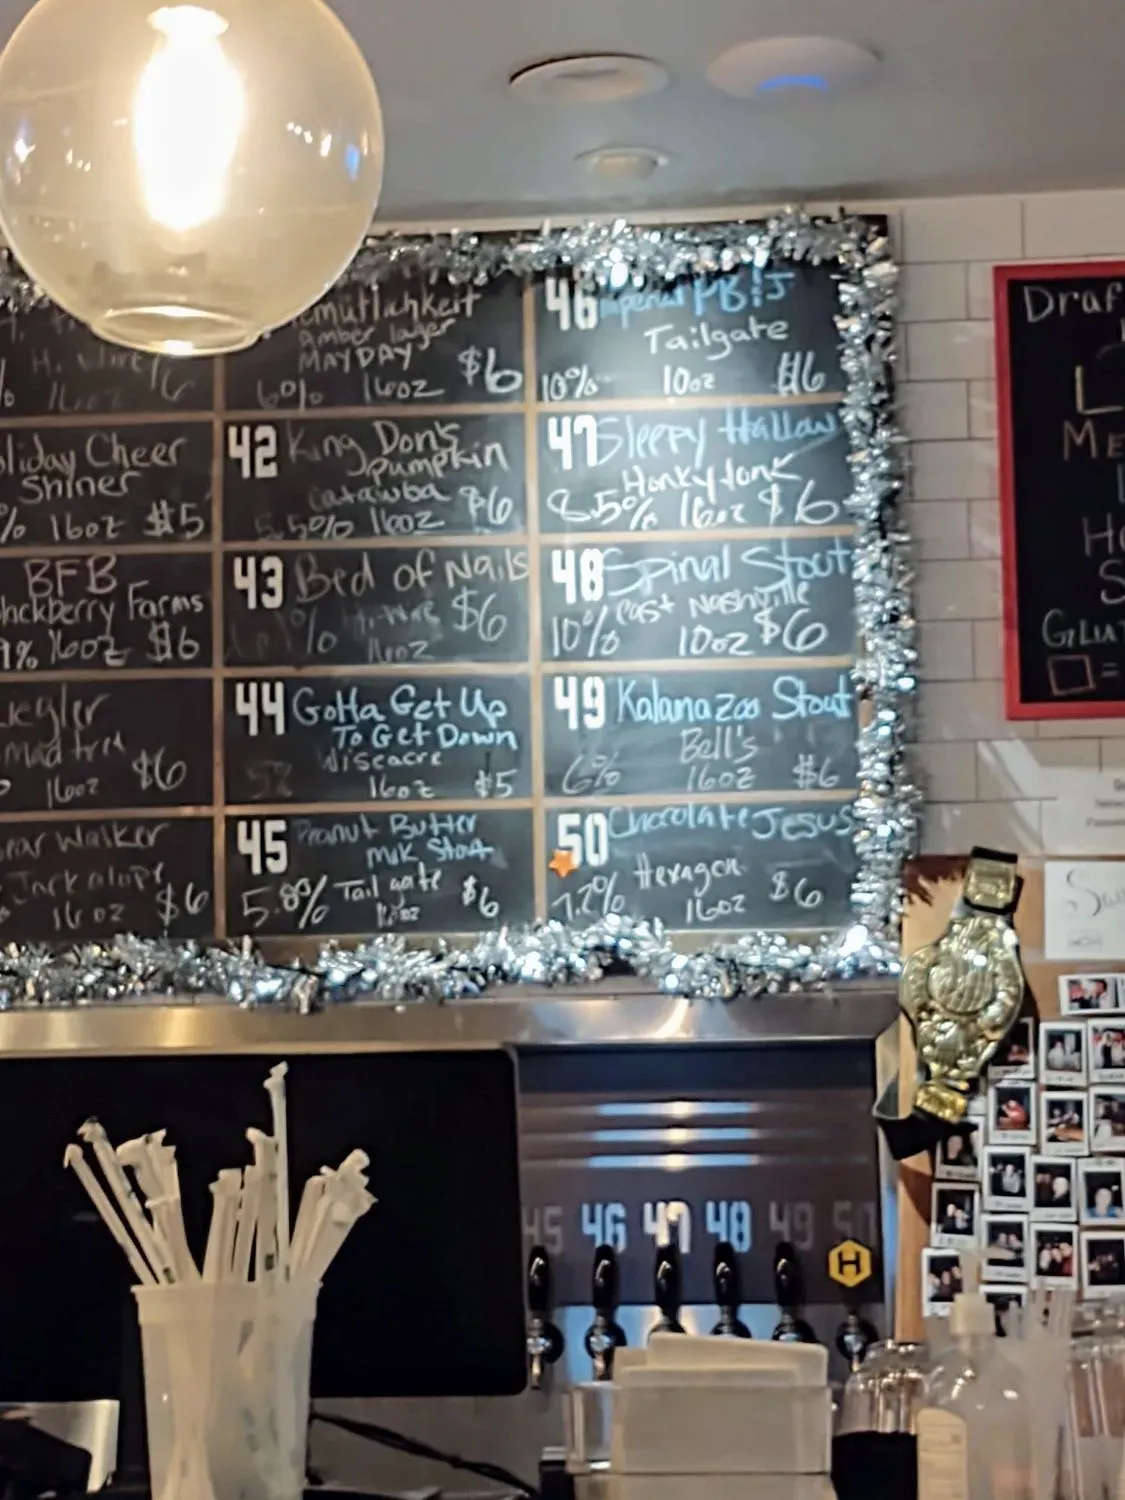 16oz
emütlichkeit
Amber lager
MAYDAY
$6
6% 16oz
46 Imperial PB&J
Tailgate
10% 10oz $6
oliday Cheer
Shiner
% 16oz $5
42 King Don's
Pumpkin
Catawba $6
5.5% 16oz
47 Sleepy Hallow
Honkytonk
8.5% 16oz $6
BFB
ackberry Farms
% 16oz $6
43 Bed of Nails
% Hi-Wire $6
16oz
48 Spinal Stout
East Nashville
10% 10oz $6
mad tree
16oz $6
44 Gotta Get Up
To Get Down
Wiseacre
5% 16oz $5
49 Kalamazoo Stout
Bell's
6% 16oz $6
ear Walker
Jackalope
16oz $6
45 Peanut Butter
Milk Stout
5.8% Tailgate $6
16oz
50 Chocolate Jesus
Hexagon
7.2% 16oz $6
Draf
L
ME
H
S
GLU
=
45 46 47 48 49 50
H